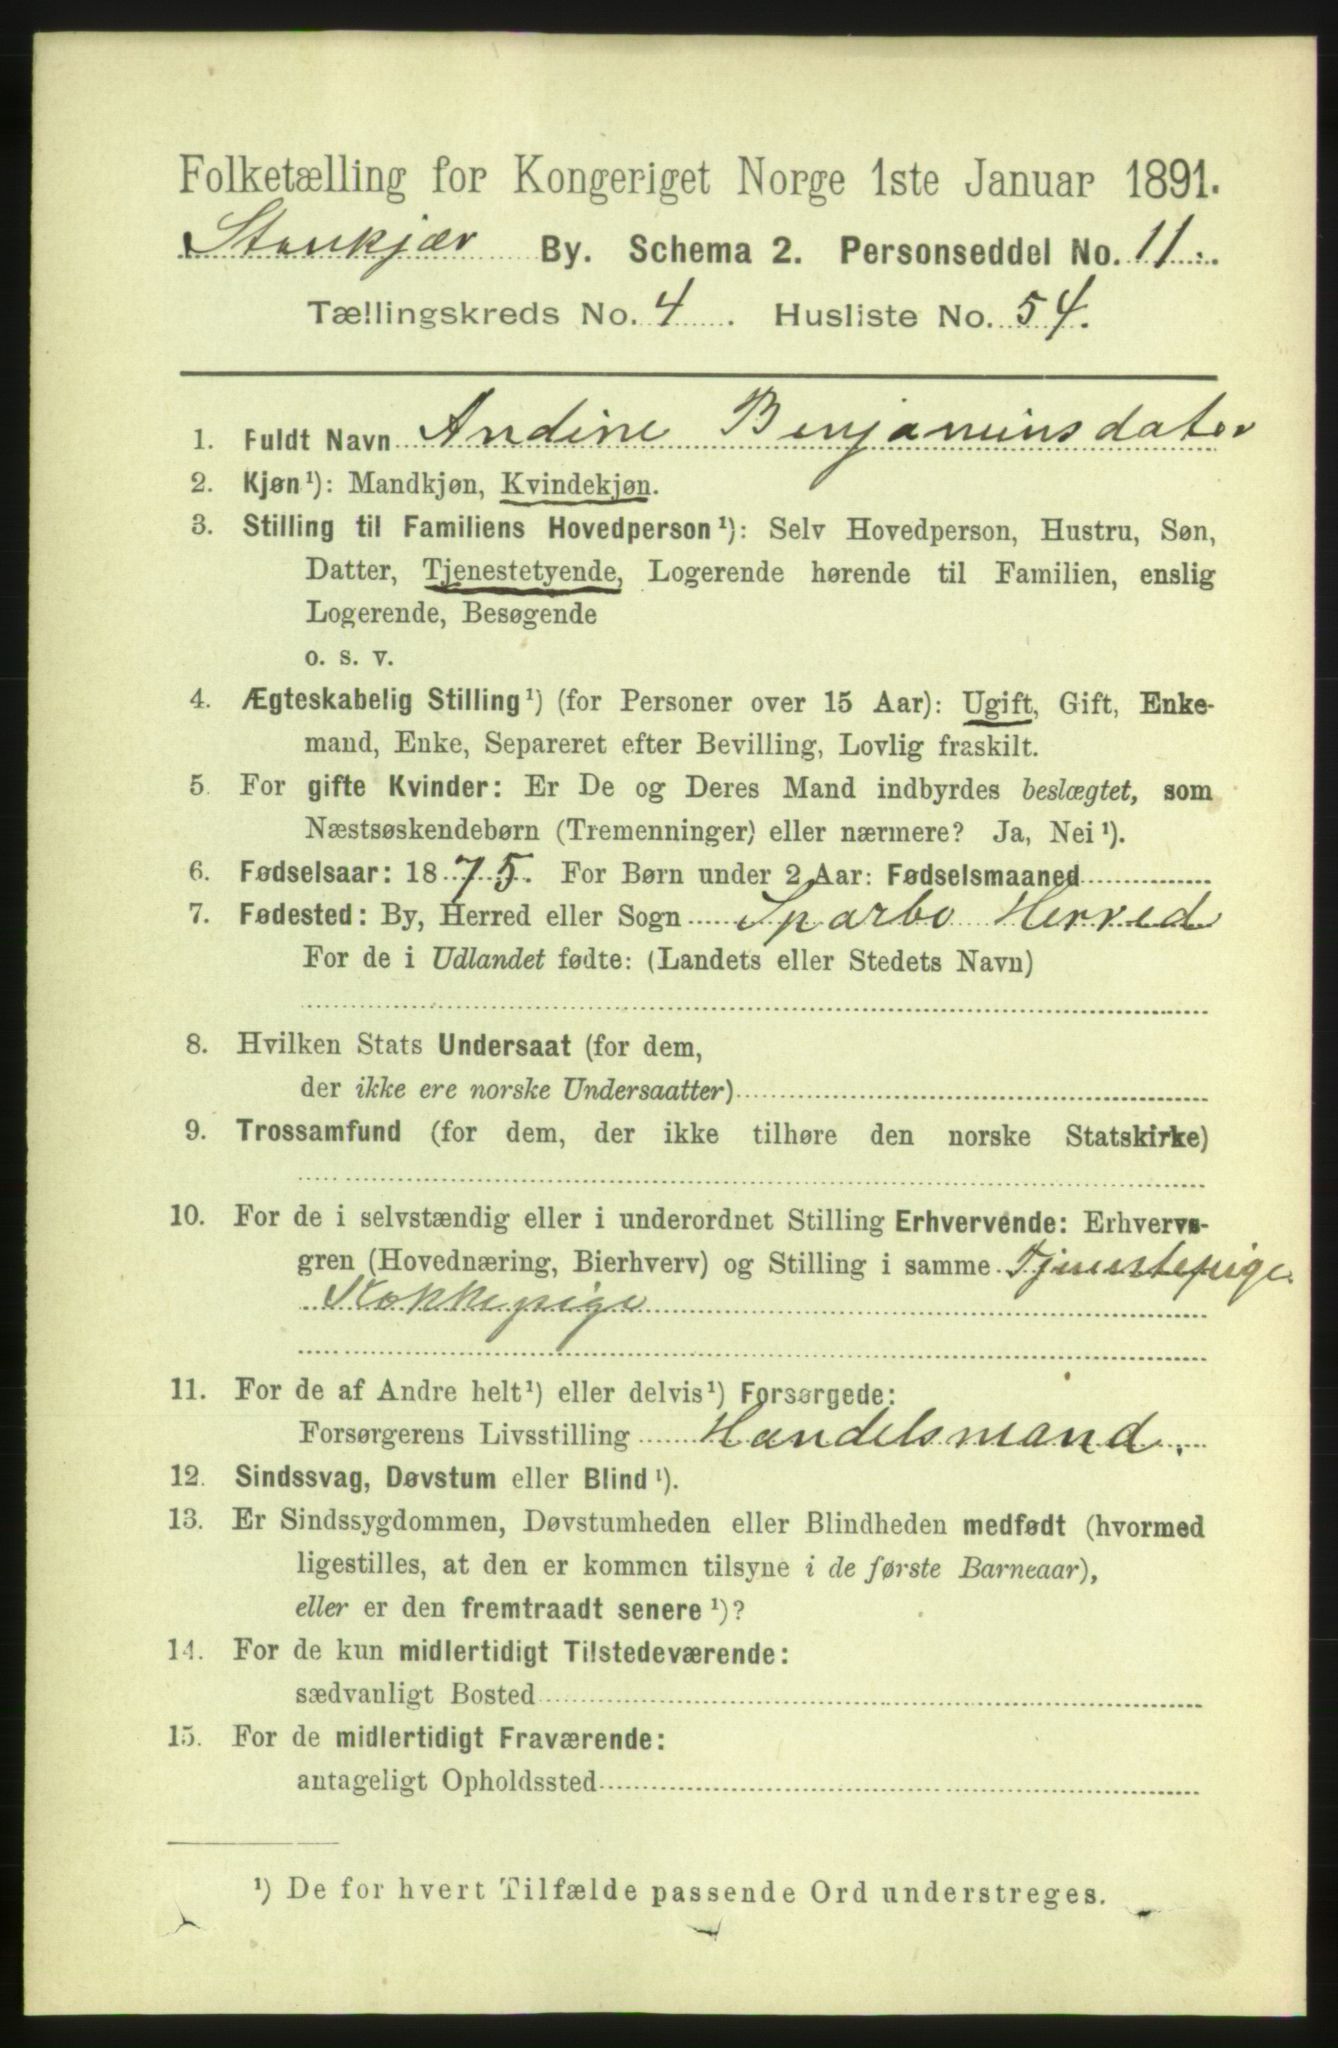 Folketælling for Kongeriget Norge 1ste Januar 1891.
Stenkjær By. Schema 2. Personseddel No. 11.
Tællingskreds No. 4. Husliste No. 54.
1. Fuldt Navn Andine Benjaminsdater
2. Kjøn ¹): Mandkjøn, Kvindekjøn.
3. Stilling til Familiens Hovedperson ¹): Selv Hovedperson, Hustru, Søn,
Datter, Tjenestetyende, Logerende hørende til Familien, enslig
Logerende, Besøgende
o. s. v.
4. Ægteskabelig Stilling ¹) (for Personer over 15 Aar): Ugift, Gift, Enke-
mand, Enke, Separeret efter Bevilling, Lovlig fraskilt.
5. For gifte Kvinder: Er De og Deres Mand indbyrdes beslægtet, som
Næstsøskendebørn (Tremenninger) eller nærmere? Ja, Nei ¹).
6. Fødselsaar: 1875. For Børn under 2 Aar: Fødselsmaaned
7. Fødested: By, Herred eller Sogn Sparbo Herred
For de i Udlandet fødte: (Landets eller Stedets Navn)
8. Hvilken Stats Undersaat (for dem,
der ikke ere norske Undersaatter)
9. Trossamfund (for dem, der ikke tilhøre den norske Statskirke)
10. For de i selvstændig eller i underordnet Stilling Erhvervende: Erhvervs-
gren (Hovednæring, Bierhverv) og Stilling i samme Tjenestepige
Kokkepige
11. For de af Andre helt ¹) eller delvis ¹) Forsørgede:
Forsørgerens Livsstilling Handelsmand.
12. Sindssvag, Døvstum eller Blind ¹).
13. Er Sindssygdommen, Døvstumheden eller Blindheden medfødt (hvormed
ligestilles, at den er kommen tilsyne i de første Barneaar),
eller er den fremtraadt senere ¹)?
14. For de kun midlertidigt Tilstedeværende:
sædvanligt Bosted
15. For de midlertidigt Fraværende:
antageligt Opholdssted
¹) De for hvert Tilfælde passende Ord understreges.